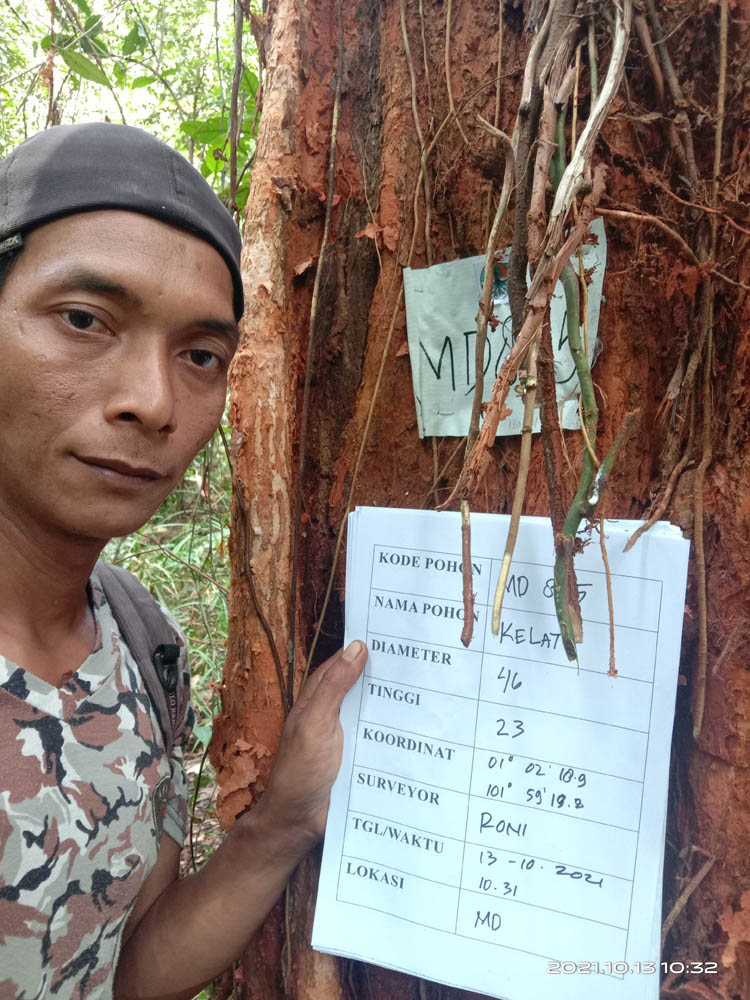 MD
KODE POHON MD
NAMA POHON KELAT
DIAMETER 46
TINGGI 23
KOORDINAT 01° 02' 18.9
101° 59' 18.2
SURVEYOR RONI
TGL/WAKTU 13-10-2021
10.31
LOKASI MD
2021.10.13 10:32